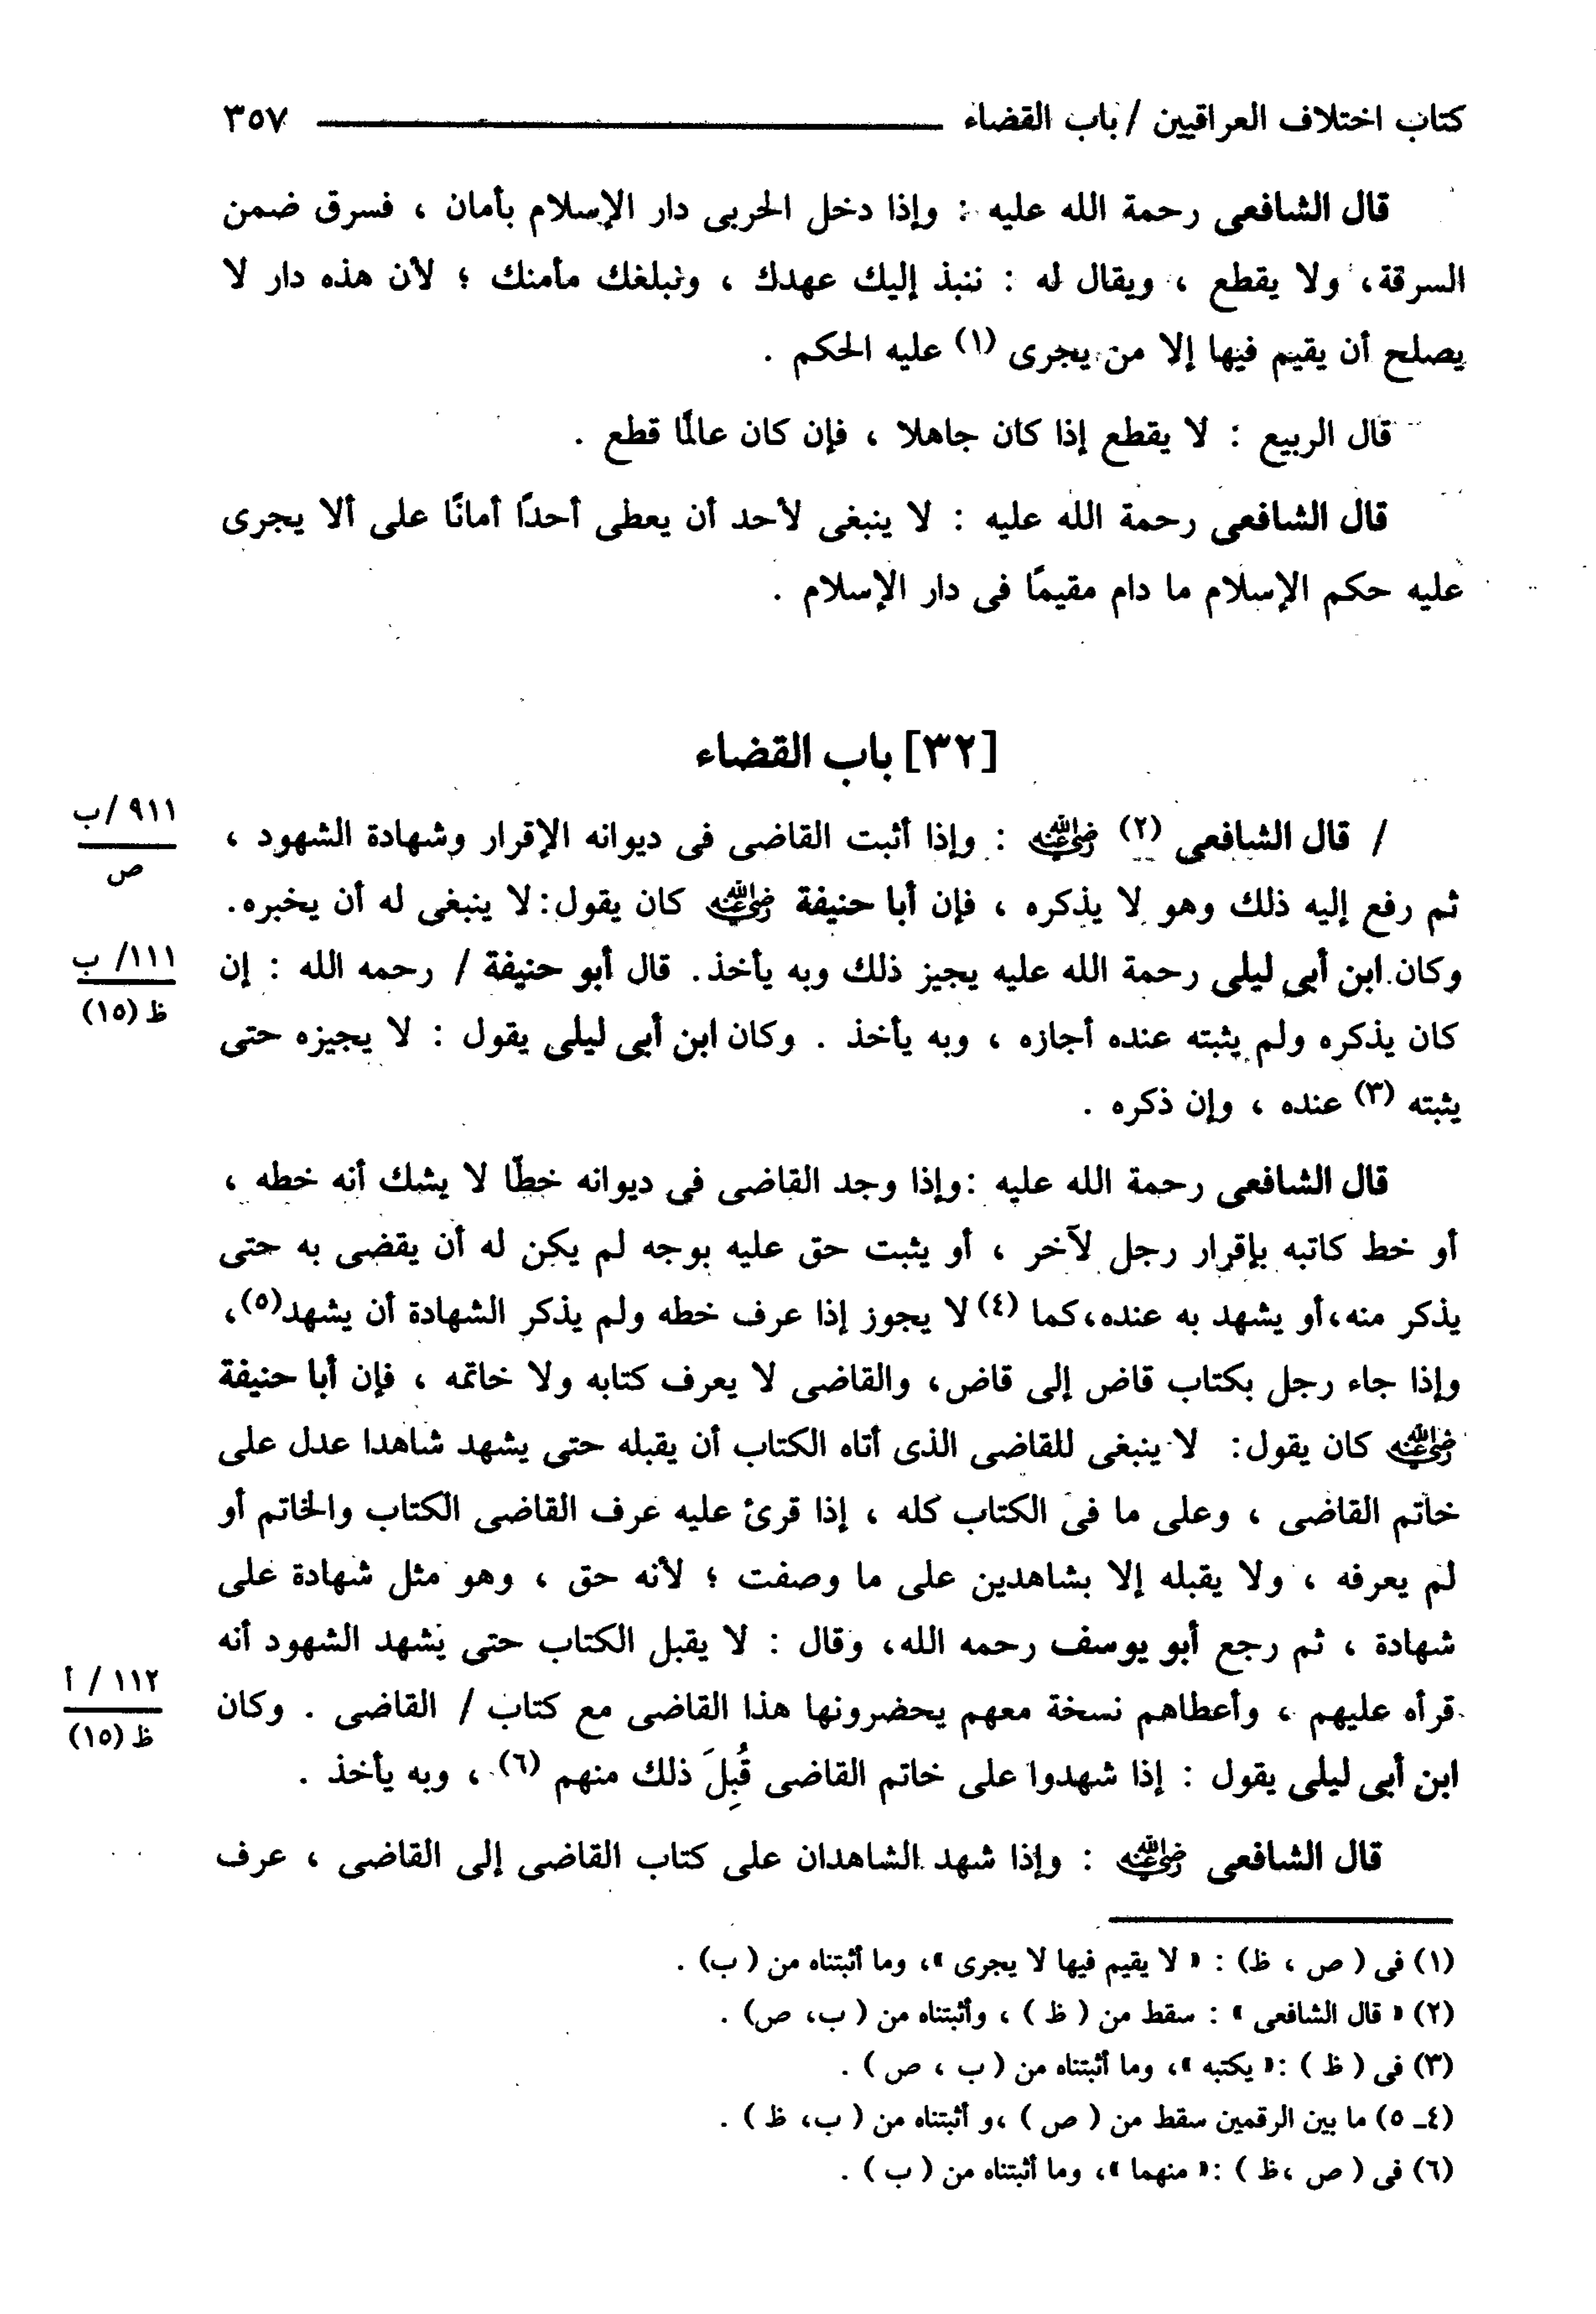 كتاب اختلاف العراقيين / باب القضاء ٣٥٧
قال الشافعى رحمة الله عليه : وإذا دخل الحربى دار الإسلام بأمان ، فسرق ضمن
السرقة، ولا يقطع ، ويقال له : ننبذ إليك عهدك ، ونبلغك مأمنك ؛ لأن هذه دار لا
يصلح أن يقيم فيها إلا من يجرى (١) عليه الحكم .
قال الربيع : لا يقطع إذا كان جاهلا ، فإن كان عالمًا قطع .
قال الشافعى رحمة الله عليه : لا ينبغى لأحد أن يعطى أحدًا أمانًا على ألا يجرى
عليه حكم الإسلام ما دام مقيمًا فى دار الإسلام .
[٣٢] باب القضاء
/ قال الشافعى (٢) رضي الله عنه : وإذا أثبت القاضى فى ديوانه الإقرار وشهادة الشهود ،
٩١١ /ب
ص
ثم رفع إليه ذلك وهو لا يذكره ، فإن أبا حنيفة رضي الله عنه كان يقول: لا ينبغى له أن يخبره.
وكان ابن أبى ليلى رحمة الله عليه يجيز ذلك وبه يأخذ. قال أبو حنيفة / رحمه الله : إن
١١١/ ب
ظ (١٥)
كان يذكره ولم يثبته عنده أجازه ، وبه يأخذ . وكان ابن أبى ليلى يقول : لا يجيزه حتى
يثبته (٣) عنده ، وإن ذكره .
قال الشافعى رحمة الله عليه :وإذا وجد القاضى فى ديوانه خطّا لا يشك أنه خطه ،
أو خط كاتبه بإقرار رجل لآخر ، أو يثبت حق عليه بوجه لم يكن له أن يقضى به حتى
يذكر منه،أو يشهد به عنده،كما (٤) لا يجوز إذا عرف خطه ولم يذكر الشهادة أن يشهد(٥)،
وإذا جاء رجل بكتاب قاض إلى قاض، والقاضى لا يعرف كتابه ولا خاتمه ، فإن أبا حنيفة
رضي الله عنه كان يقول: لا ينبغى للقاضى الذى أتاه الكتاب أن يقبله حتى يشهد شاهدا عدل على
خاتم القاضى ، وعلى ما فى الكتاب كله ، إذا قرئ عليه عرف القاضى الكتاب والخاتم أو
لم يعرفه ، ولا يقبله إلا بشاهدين على ما وصفت ؛ لأنه حق ، وهو مثل شهادة على
شهادة ، ثم رجع أبو يوسف رحمه الله، وقال : لا يقبل الكتاب حتى يشهد الشهود أنه
قرأه عليهم ، وأعطاهم نسخة معهم يحضرونها هذا القاضى مع كتاب / القاضى . وكان
١١٢ / أ
ظ (١٥)
ابن أبى ليلى يقول : إذا شهدوا على خاتم القاضى قُبِلَ ذلك منهم (٦) ، وبه يأخذ .
قال الشافعى رضي الله عنه : وإذا شهد الشاهدان على كتاب القاضى إلى القاضى ، عرف
(١) فى ( ص ، ظ) : « لا يقيم فيها لا يجرى »، وما أثبتناه من ( ب) .
(٢) « قال الشافعى » : سقط من ( ظ ) ، وأثبتناه من ( ب، ص) .
(٣) فى ( ظ ) :« يكتبه »، وما أثبتناه من ( ب ، ص ) .
(٤ـ ٥) ما بين الرقمين سقط من ( ص ) ،و أثبتناه من ( ب، ظ ) .
(٦) فى ( ص ،ظ ) :« منهما »، وما أثبتناه من ( ب ) .